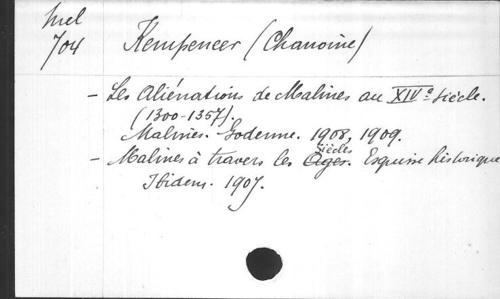 Mel
704
Kempeneer (Chanoine)
- Les Aliénations de Malines au XIVe siècle.
(1300-1357).
Malines. Godenne. 1908, 1909.
- Malines à travers les Ages. Siècles Esquisse historique
Ibidem. 1907.